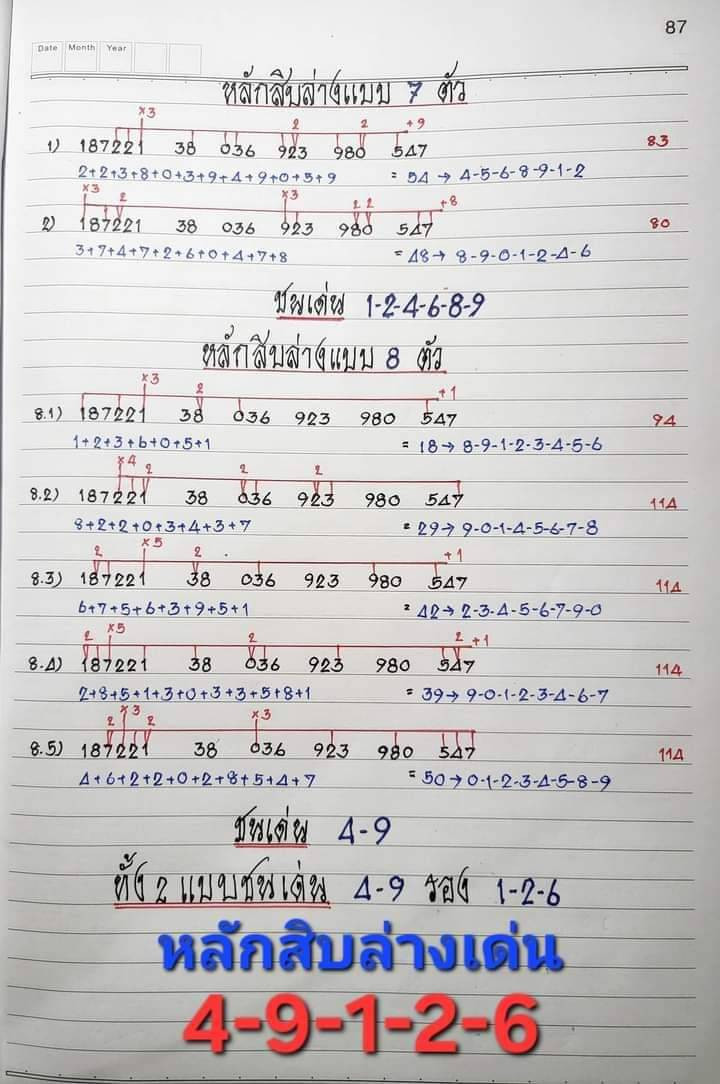 87
Date Month Year
หลักสิบล่างแบบ 7 ตัว
×3 2 2 +9
1) 187221 38 036 923 980 547 83
2+2+3+8+0+3+9+4+9+0+5+9 = 54 → 4-5-6-8-9-1-2
×3 2 ×3 2 2 +8
2) 187221 38 036 923 980 547 80
3+7+4+7+2+6+0+4+7+8 = 48 → 8-9-0-1-2-4-6
ชนเด่น 1-2-4-6-8-9
หลักสิบล่างแบบ 8 ตัว
×3 2 +1
8.1) 187221 38 036 923 980 547 94
1+2+3+6+0+5+1 = 18 → 8-9-1-2-3-4-5-6
×4 2 2 2
8.2) 187221 38 036 923 980 547 114
8+2+2+0+3+4+3+7 = 29 → 9-0-1-4-5-6-7-8
2 ×5 2 +1
8.3) 187221 38 036 923 980 547 114
6+7+5+6+3+9+5+1 = 42 → 2-3-4-5-6-7-9-0
2 ×5 2 2 +1
8.4) 187221 38 036 923 980 547 114
2+8+5+1+3+0+3+3+5+8+1 = 39 → 9-0-1-2-3-4-6-7
2 ×3 2 ×3
8.5) 187221 38 036 923 980 547 114
4+6+2+2+0+2+8+5+4+7 = 50 → 0-1-2-3-4-5-8-9
ชนเด่น 4-9
ทั้ง 2 แบบชนเด่น 4-9 รอง 1-2-6
หลักสิบล่างเด่น
4-9-1-2-6